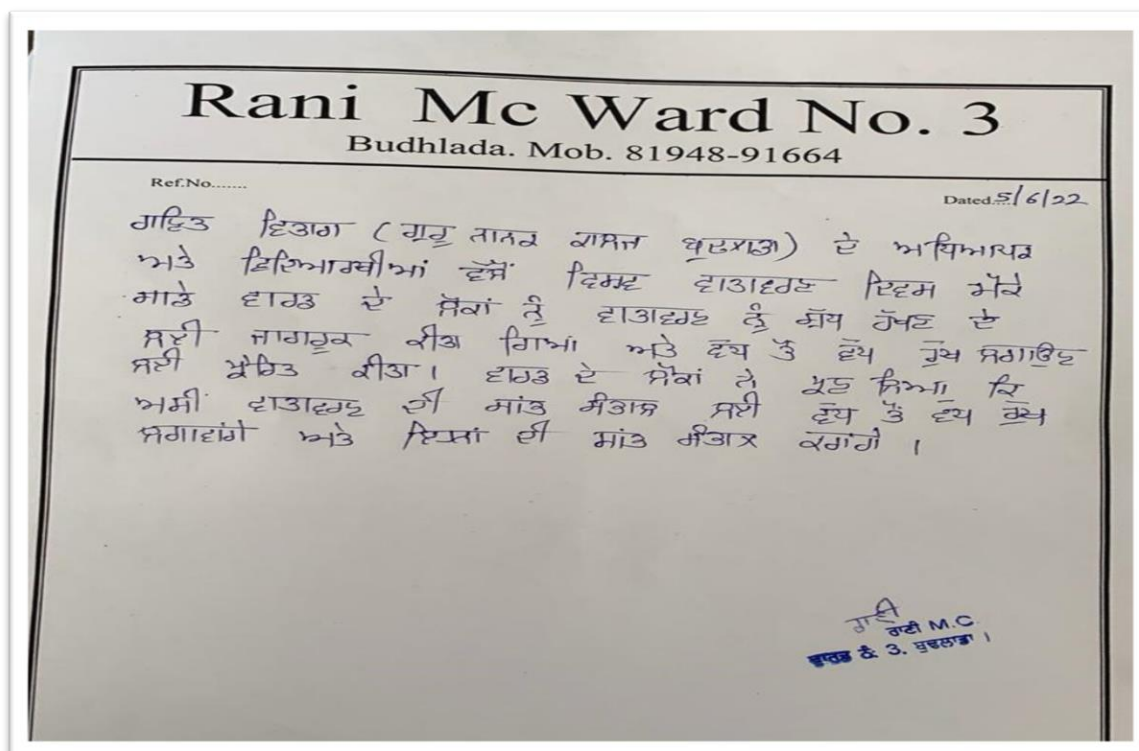 Rani Mc Ward No. 3
Budhlada. Mob. 81948-91664
Ref.No.......
Dated....5/6/22
ਗਣਿਤ ਵਿਭਾਗ (ਗੁਰੂ ਨਾਨਕ ਕਾਲਜ ਬੁਢਲਾਡਾ) ਦੇ ਅਧਿਆਪਕ
ਅਤੇ ਵਿਦਿਆਰਥੀਆਂ ਵੱਲੋਂ ਵਿਸ਼ਵ ਵਾਤਾਵਰਣ ਦਿਵਸ ਮੌਕੇ
ਸਾਡੇ ਵਾਰਡ ਦੇ ਲੋਕਾਂ ਨੂੰ ਵਾਤਾਵਰਣ ਨੂੰ ਸ਼ੁੱਧ ਰੱਖਣ ਦੇ
ਲਈ ਜਾਗਰੂਕ ਕੀਤਾ ਗਿਆ ਅਤੇ ਵੱਧ ਤੋਂ ਵੱਧ ਰੁੱਖ ਲਗਾਉਣ
ਲਈ ਪ੍ਰੇਰਿਤ ਕੀਤਾ। ਵਾਰਡ ਦੇ ਲੋਕਾਂ ਨੇ ਪ੍ਰਣ ਲਿਆ ਕਿ
ਅਸੀਂ ਵਾਤਾਵਰਣ ਦੀ ਸਾਂਭ ਸੰਭਾਲ ਲਈ ਵੱਧ ਤੋਂ ਵੱਧ ਰੁੱਖ
ਲਗਾਵਾਂਗੇ ਅਤੇ ਇਸਾਂ ਦੀ ਸਾਂਭ ਸੰਭਾਲ ਕਰਾਂਗੇ ।
ਰਾਣੀ
ਰਾਣੀ M.C.
ਵਾਰਡ ਨੰ: 3. ਬੁਢਲਾਡਾ ।